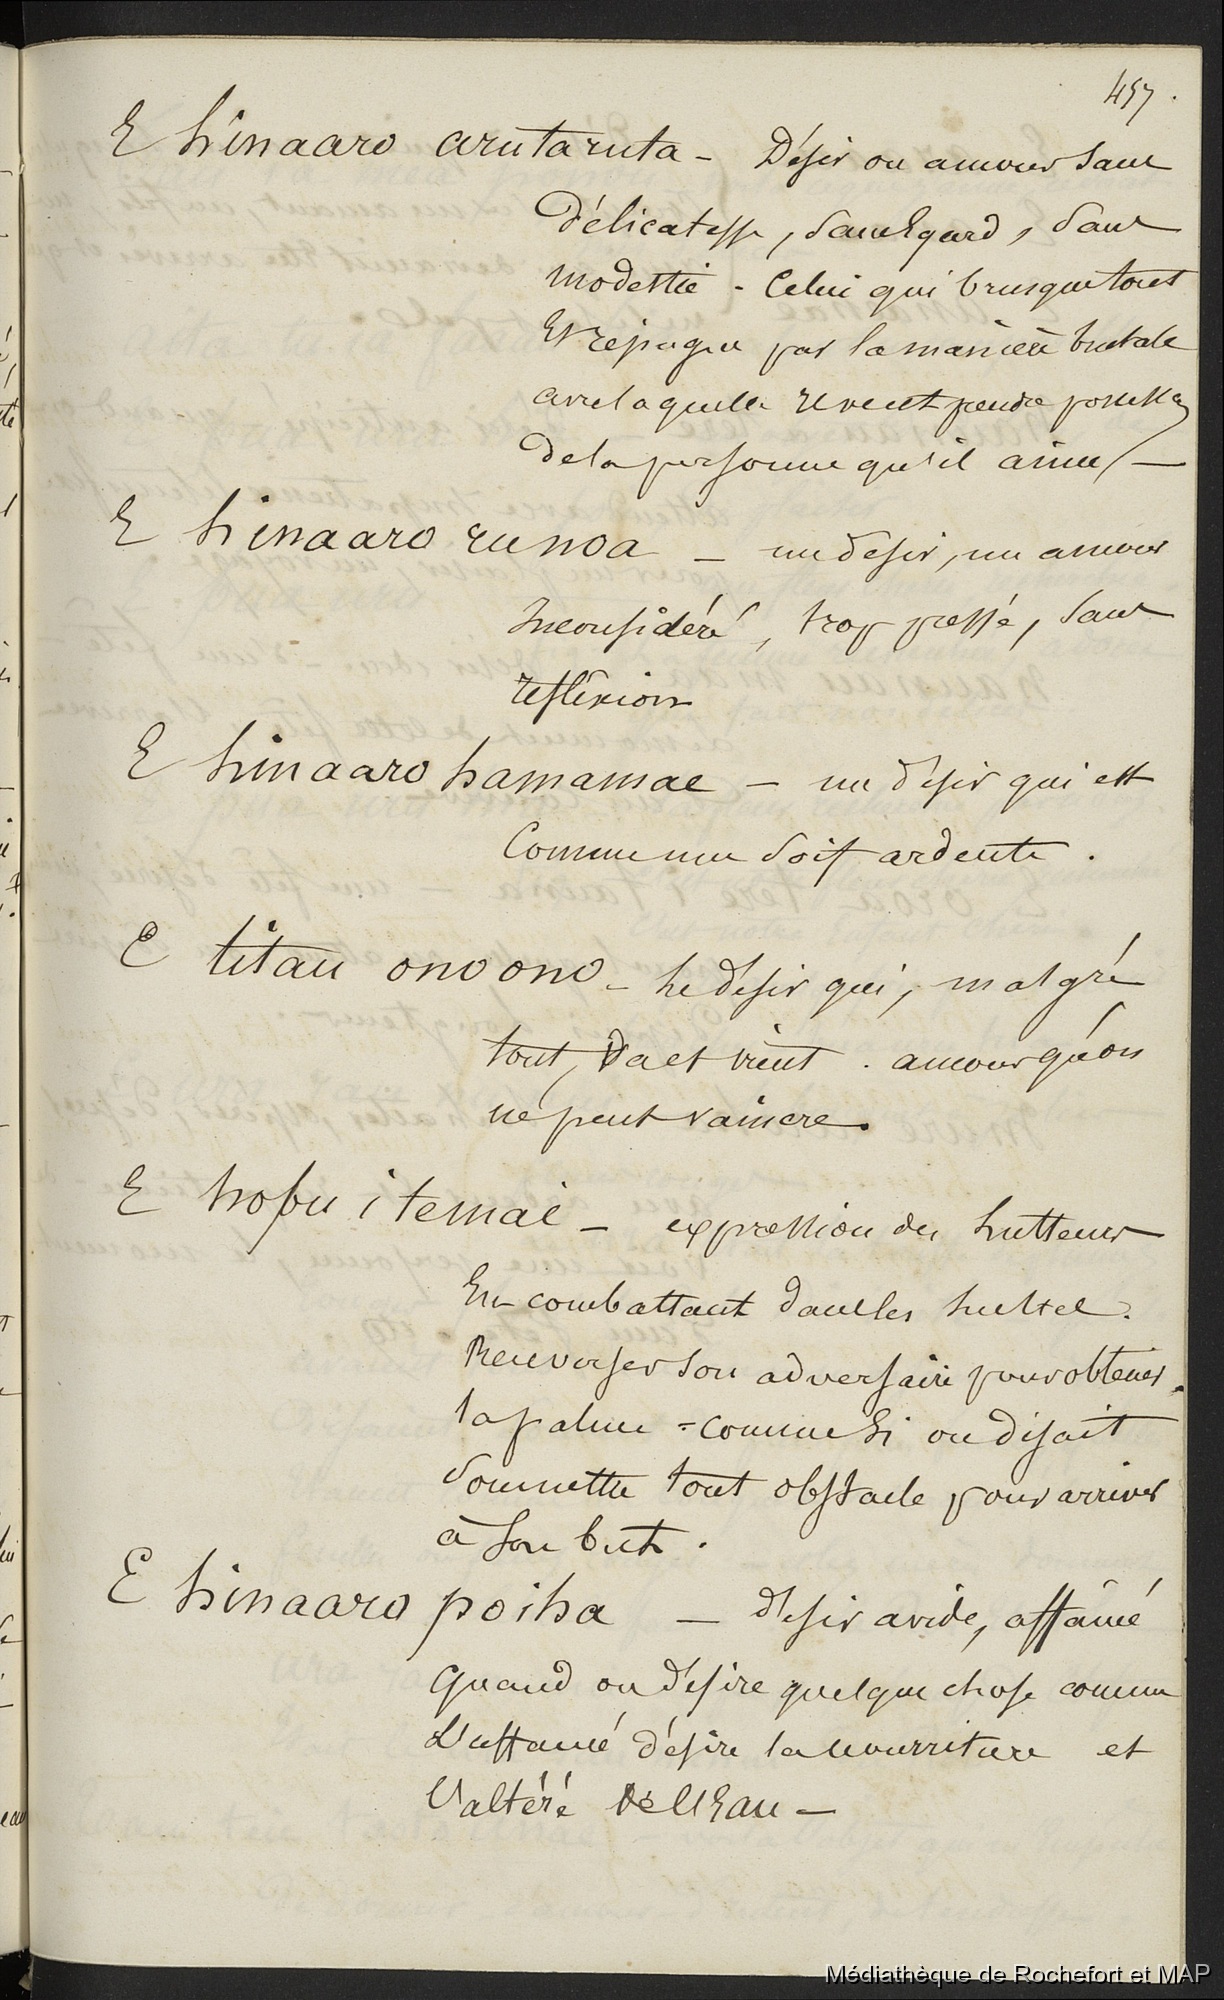 457.
E hinaaro arutaruta - Désir ou amour sans
délicatesse, sans égard, sans
modestie - Celui qui brusque tout
et répugne par la manière brutale
avec laquelle il veut prendre possession
de la personne qu'il aime/ —
E hinaaro runoa — un désir, un amour
inconsidéré, trop pressé, sans
réflexion
E hinaaro hamamae — un désir qui est
comme une soif ardente.
E titau onoono - le désir qui, malgré
tout, va et vient. amour qu'on
ne peut vaincre.
E hopu i te mai — expression des lutteurs
En combattant dans les luttes.
Renverser son adversaire pour obtenir
la palme = comme si on disait
soumettre tout obstacle pour arriver
à son but.
E hinaaro poiha — désir avide, affâmé
Quand on désire quelque chose comme
L'affamé désire la nourriture et
l'altéré de l'Eau —
Médiathèque de Rochefort et MAP